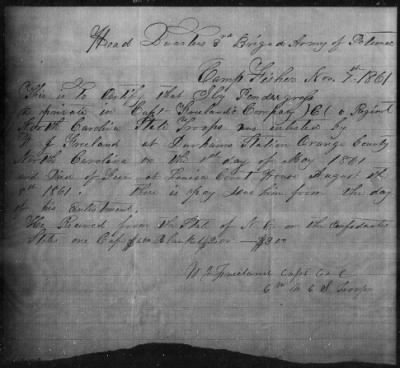 Head Quarters 3rd Brigad Army of Potomac
Camp Fisher Nov. 7th 1861
This is to Certify that Sly Pendergrass
a private in Capt Freeland's Company (C) 6 Regiment
North Carolina State Troops was enlisted by
W J Freeland at Durhams Station Orange County
North Carolina on the 1st day of May 1861
and Died of Fever at Prince Court House August the
8th 1861. there is pay due him from the day
of his enlistment.
He Received from the State of N. C. or the Confederates
States one Cap $1.00 Blanket $2.00 — $3.00
W J Freeland Capt Co C
6th N C S Troops